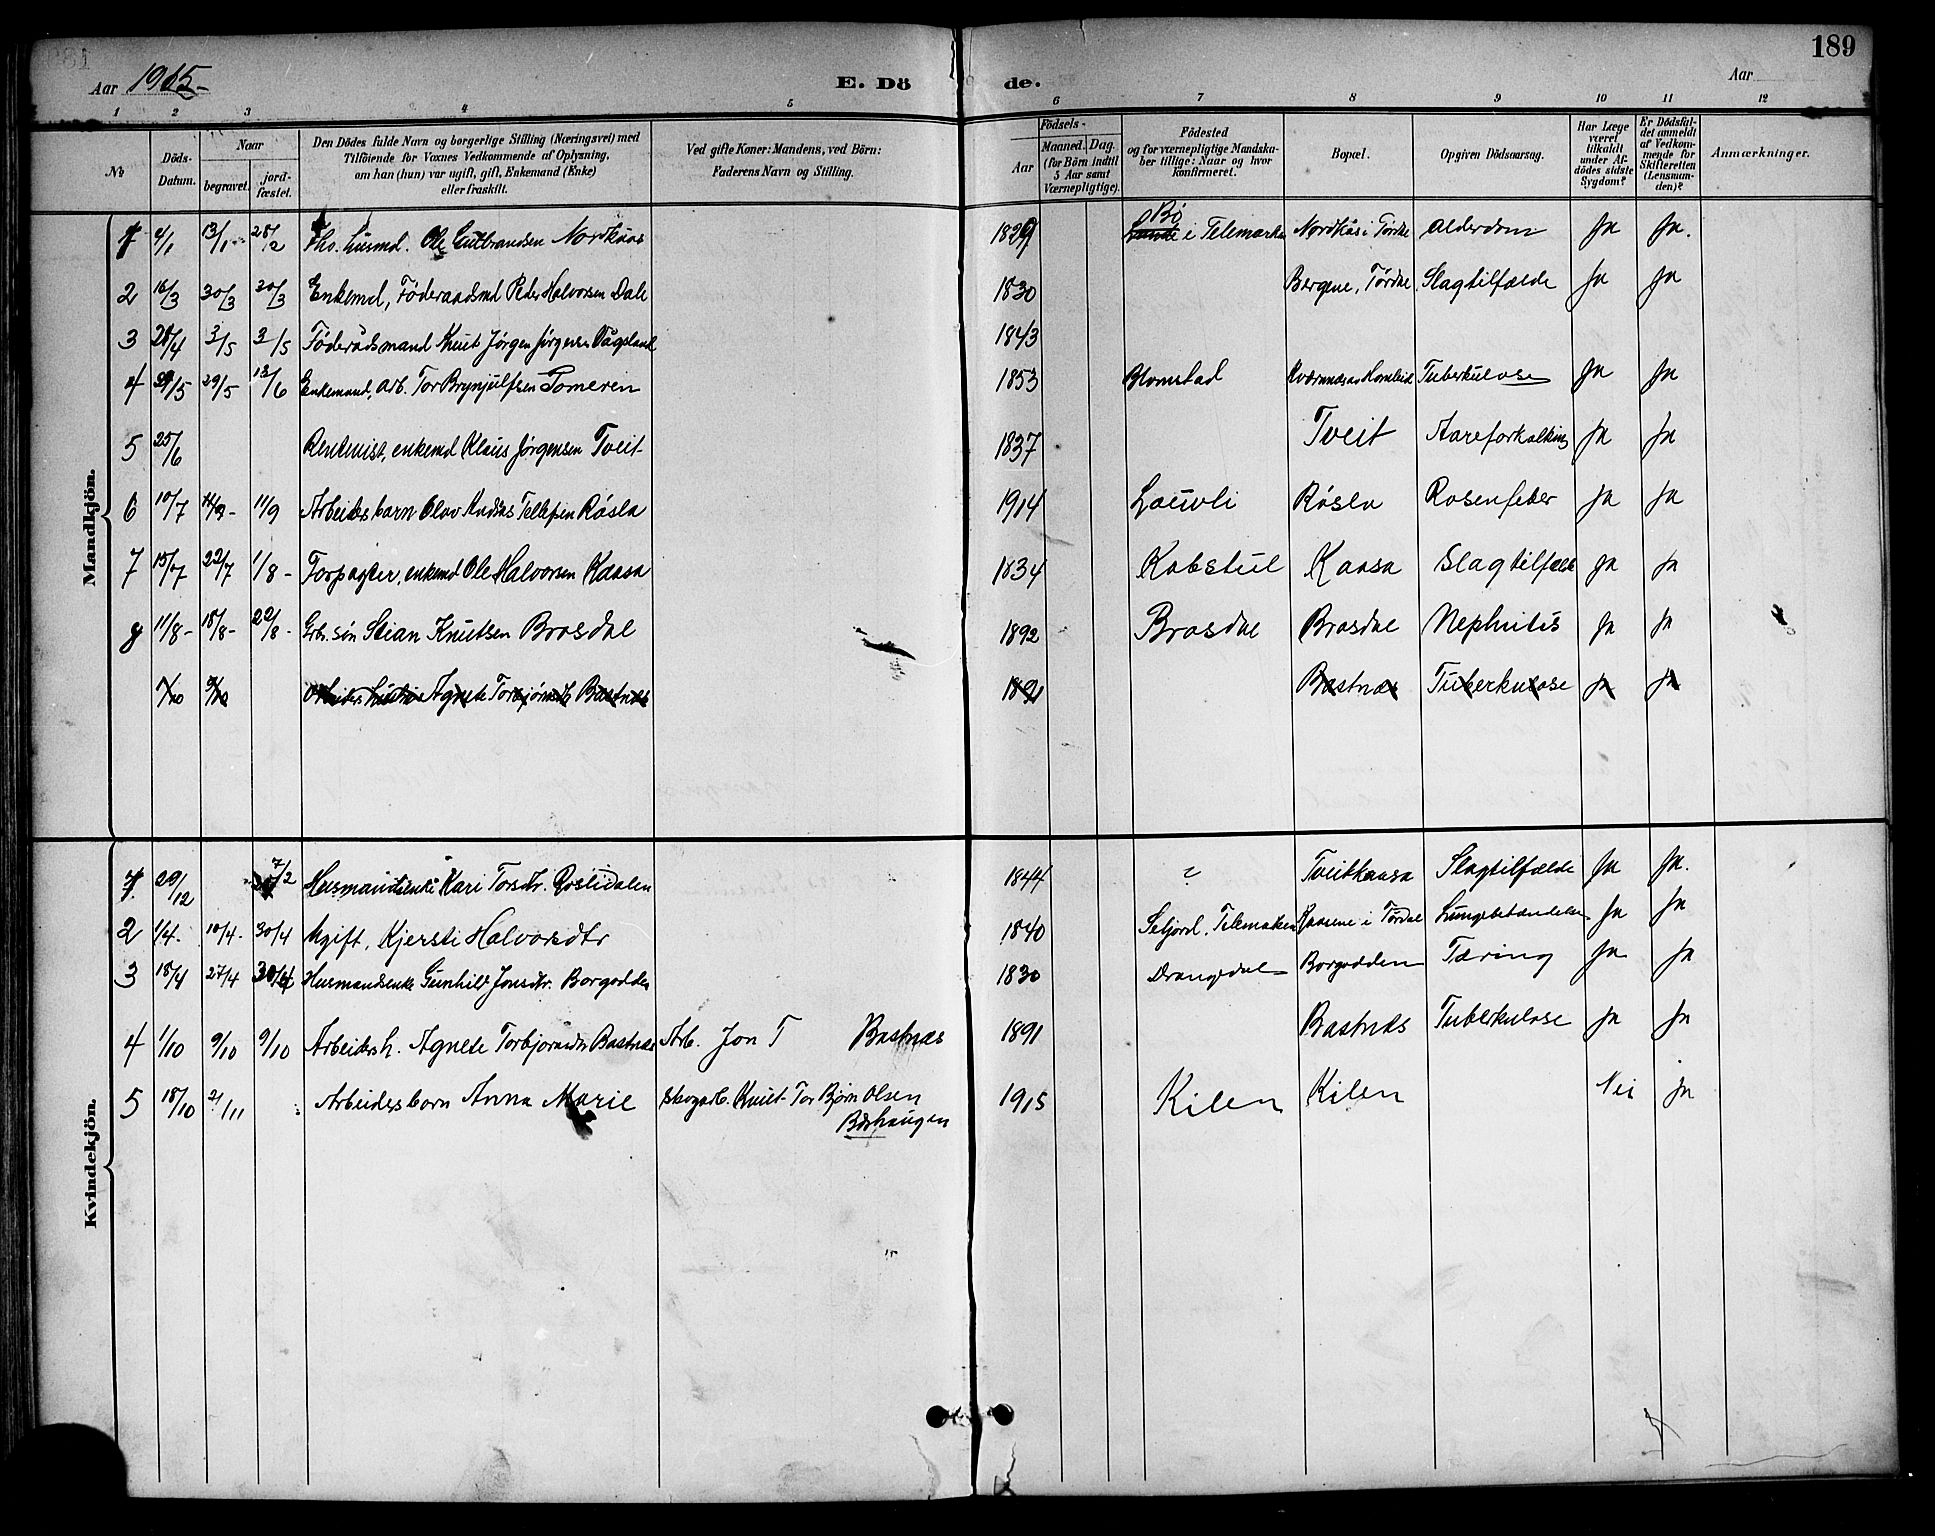 189
Aar 1915-
E. Dö de.
Aar
1 2 3 4 5 6 7 8 9 10 11 12
No
Döds-Datum.
Naar
begravet.
jord-fæstet.
Den Dödes fulde Navn og borgerlige Stilling (Næringsvei) med
Tilföiende for Voxnes Vedkommende af Oplysning,
om han (hun) var ugift, gift, Enkemand (Enke)
eller fraskilt.
Ved gifte Koner: Mandens, ved Börn:
Faderens Navn og Stilling.
Födsels-
Aar
Maaned. Dag.
(for Börn indtil
5 Aar samt
Værnepligtige).
Födested
og for værnepligtige Mandska-
ber tillige: Naar og hvor
konfirmeret.
Bopæl.
Opgiven Dödsaarsag.
Har Læge
været
tilkaldt
under Af-
dödes sidste
Sygdom?
Er Dödsfal-
det anmeldt
af Vedkom-
mende for
Skifteretten
(Lensman-
den)?
Anmærkninger.
Mandkjön.
1 4/1 13/1- 28/2 Fho. husmd. Ole Gulbrandsen Nordkaas 1829 Bø i Telemarken Nordkås i Tørdal Alderdom Ja Ja.
2 16/3 30/3 30/3 Enkemd, Föderaadsmd Peder Halvorsen Dale 1830 Bergene, Tørdal Slagtilfælde Ja Ja
3 28/4 3/5 3/5 Föderådsmand Knut Jørgen Jørgensen Vågsland 1843
4 29/5 29/5 13/6 Enkemand, Arb. Tor Brynjulfsen Tomeren 1853 Blomstad Tuberkulose Ja Ja
5 25/6 Rentenist, enkemd Klaus Jørgensen Tveit 1837 Tveit Aareforkalkning Ja Ja
6 10/7 11/9- 11/9 Arbeidersbarn Olav Andreas Tellefsen Røsla 1914 Lauvli Røsla Rosenfeber Ja Ja
7 15/7 22/7 1/8- Forpagter, enkemd Ole Halvorsen Kaasa 1834 Kabstul Kaasa Slagtilfælde Ja Ja
8 11/8- 18/8- 22/8- Grb. søn Stian Knutsen Brosdal 1892 Brosdal Brosdal Nephritis Ja Ja
1/10 9/10 Arbeiders hustru Agnete Torbjørnsdtr Bastnæs 1891 Bastnæs Tuberkulose Ja Ja
Kvindekjön.
1. 29/12 7/2 Husmandsenke Kari Torsdtr. Roslidalen 1844 ? Tveitkaasa Slagtilfælde Ja Ja.
2 1/4- 10/4- 30/4 Ugift, Kjersti Halvorsdtr 1840 Seljord, Telemarken Kaasene i Tørdal Lungebetændelse Ja Ja
3 18/4 27/4 30/4 Husmandsenke Gunhild Jonsdtr. Borgodden 1830 Drangedal Borgodden Tæring Ja Ja
4 1/10 9/10 9/10 Arbeidersh. Agnete Torbjørnsdtr Bastnæs Arb. Jon T Bastnæs 1891 Bastnæs Tuberkulose Ja Ja
5 18/10 2/11 Arbeidersbarn Anna Marie Skogarb. Knut Tor Bjørn Olsen 1915 Kilen Kilen Nei Ja
Bærhaugen